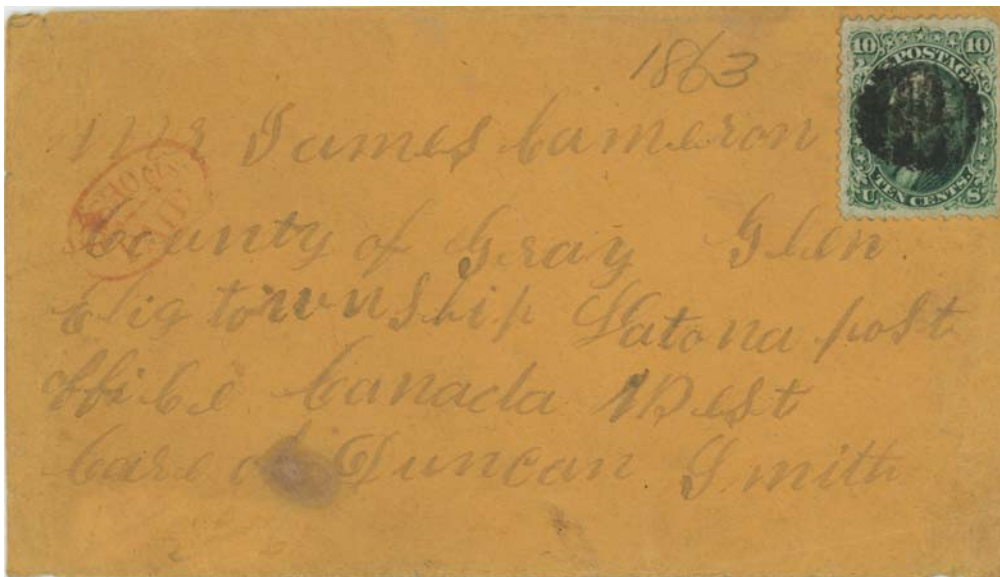 1863
10 10
U.S. POSTAGE
TEN CENTS.
U S
Mr James Cameron
County of Gray Glen
Elig township Latona post
office Canada West
Care of Duncan Smith
PAID